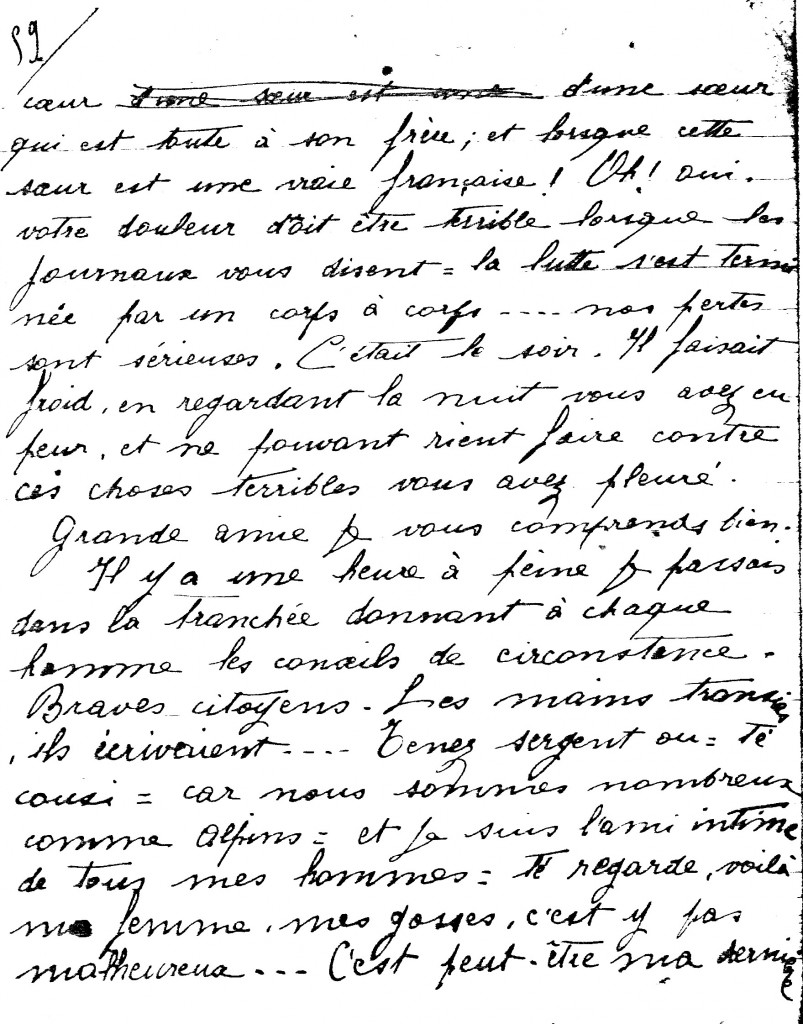 59/
cœur d'une sœur est une d'une sœur
qui est toute à son frère; et lorsque cette
sœur est une vraie française! Oh! oui.
votre douleur doit être terrible lorsque les
journaux vous disent = la lutte s'est termi
née par un corps à corps .... nos pertes
sont sérieuses. C'était le soir. Il faisait
froid, en regardant la nuit vous avez eu
peur, et ne pouvant rient faire contre
ces choses terribles vous avez pleuré.
Grande amie je vous comprends bien.
Il y a une heure à peine je passais
dans la tranchée donnant à chaque
homme les conseils de circonstance.
Braves citoyens. Les mains transies
, ils écrivaient .... Tenez sergent ou = Té
cousi = car nous sommes nombreux
comme Alpins = et je suis l'ami intime
de tous mes hommes = té regarde, voilà
ma femme, mes gosses, c'est y pas
malheureux ... C'est peut-être ma dernière